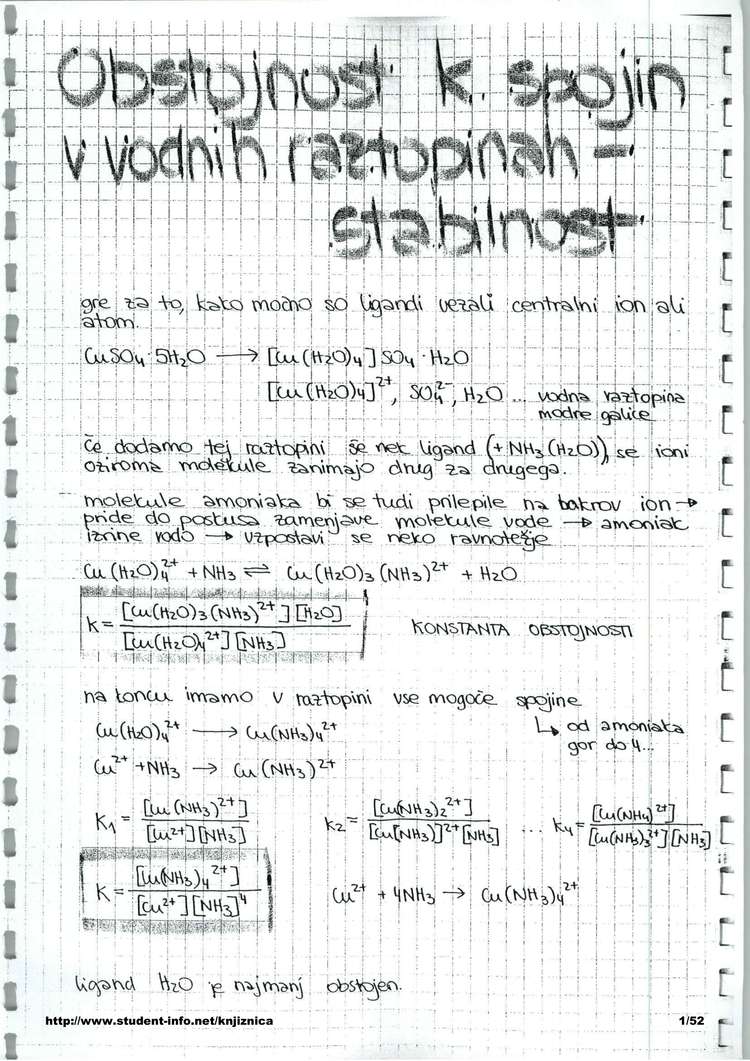 Obstojnost k. spojin
v vodnih raztopinah -
stabilnost
gre za to, kako močno so ligandi vezali centralni ion ali
atom.
CuSO4·5H2O → [Cu(H2O)4]SO4·H2O
[Cu(H2O)4]²⁺, SO4²⁻, H2O ... vodna raztopina
modre galice
če dodamo tej raztopini še nek ligand (+NH3(H2O)), se ioni
oziroma molekule zanimajo drug za drugega.
molekule amoniaka bi se tudi prilepile na bakrov ion →
pride do poskusa zamenjave molekule vode → amoniak
izrine vodo → vzpostavi se neko ravnotežje
Cu(H2O)4²⁺ + NH3 ⇌ Cu(H2O)3(NH3)²⁺ + H2O
K = [Cu(H2O)3(NH3)²⁺][H2O] / [Cu(H2O)4²⁺][NH3] KONSTANTA OBSTOJNOSTI
na koncu imamo v raztopini vse mogoče spojine
Cu(H2O)4²⁺ → Cu(NH3)4²⁺ ↳ od amoniaka
gor do 4...
Cu²⁺ + NH3 → Cu(NH3)²⁺
K1 = [Cu(NH3)²⁺] / [Cu²⁺][NH3] K2 = [Cu(NH3)2²⁺] / [Cu[NH3)]²⁺[NH3] ... K4 = [Cu(NH4)²⁺] / [Cu(NH3)3²⁺][NH3]
K = [Cu(NH3)4²⁺] / [Cu²⁺][NH3]⁴ Cu²⁺ + 4NH3 → Cu(NH3)4²⁺
ligand H2O je najmanj obstojen.
http://www.student-info.net/knjiznica 1/52